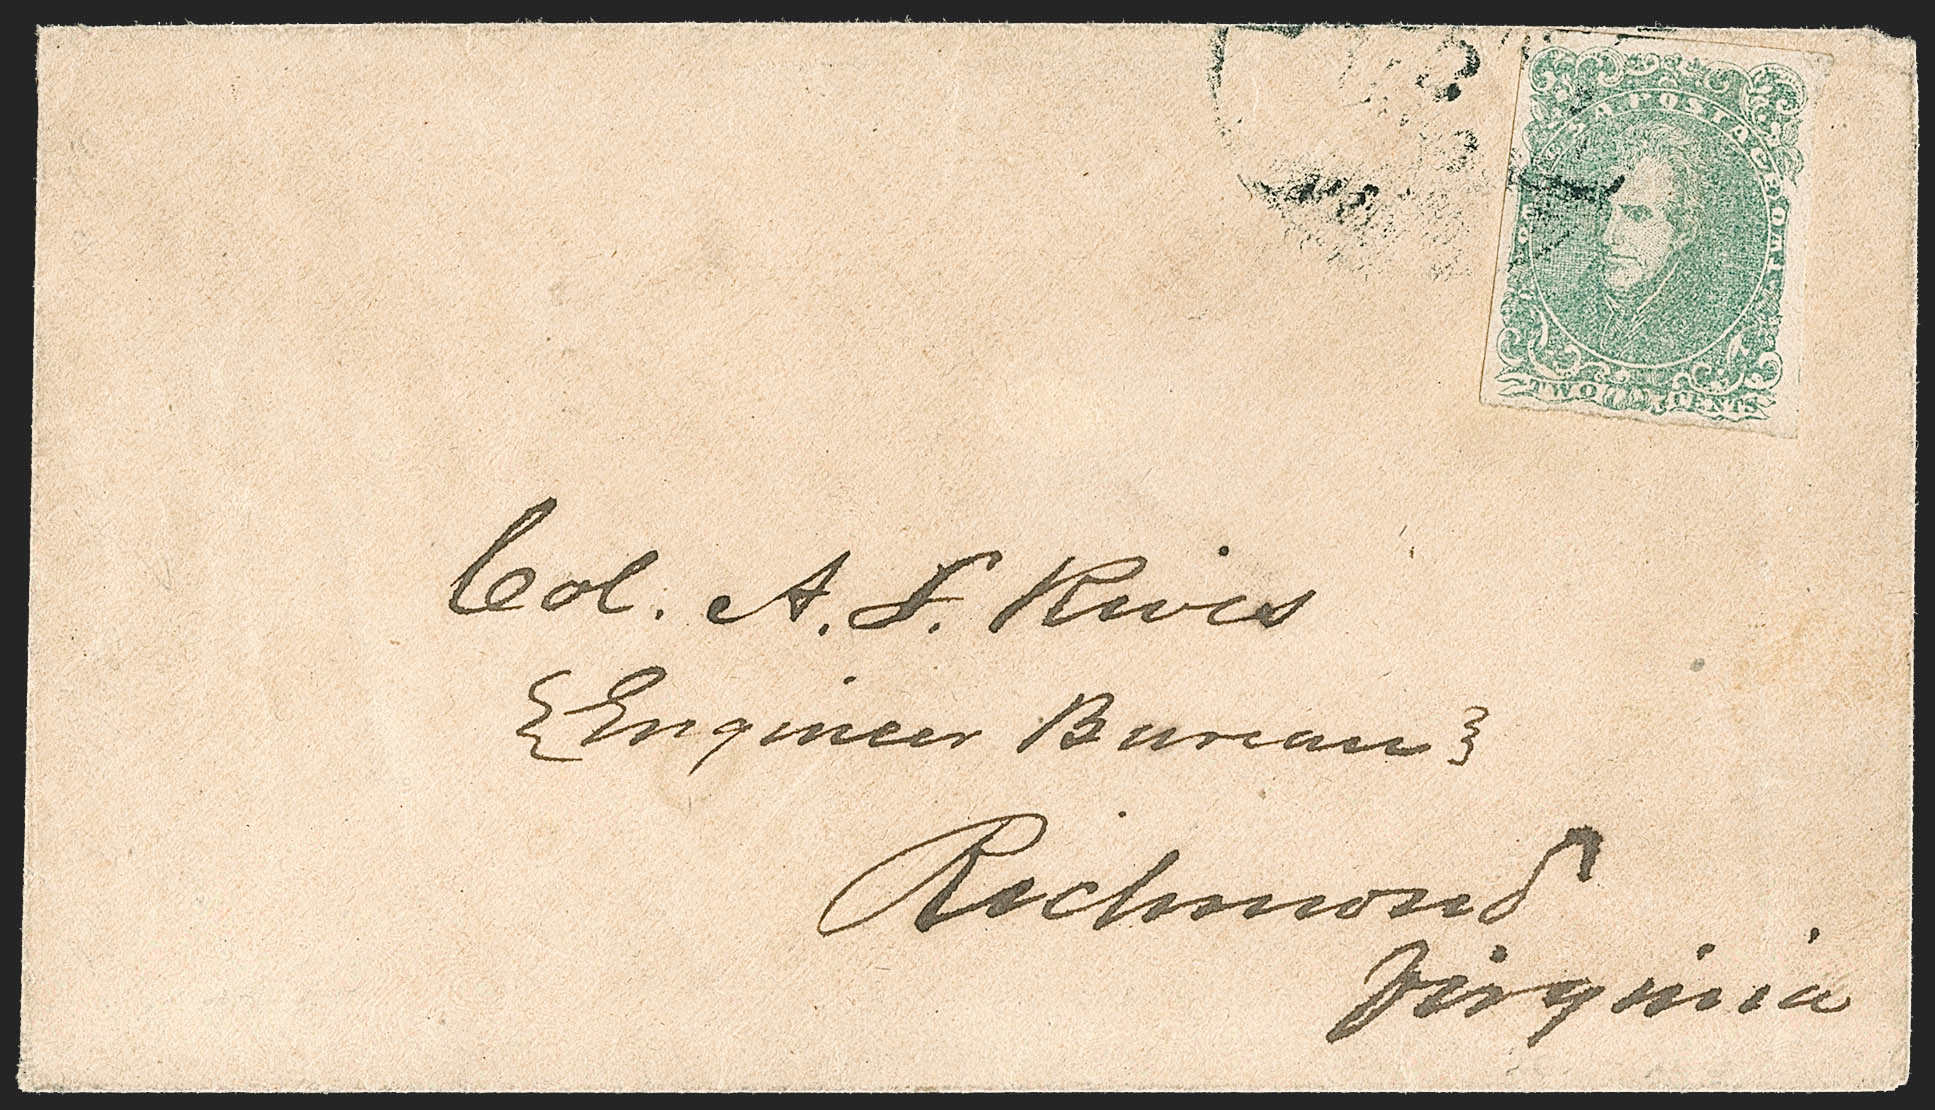 C S A POSTAGE
TWO CENTS
Col. A. L. Rives
{Engineer Bureau}
Richmond
Virginia